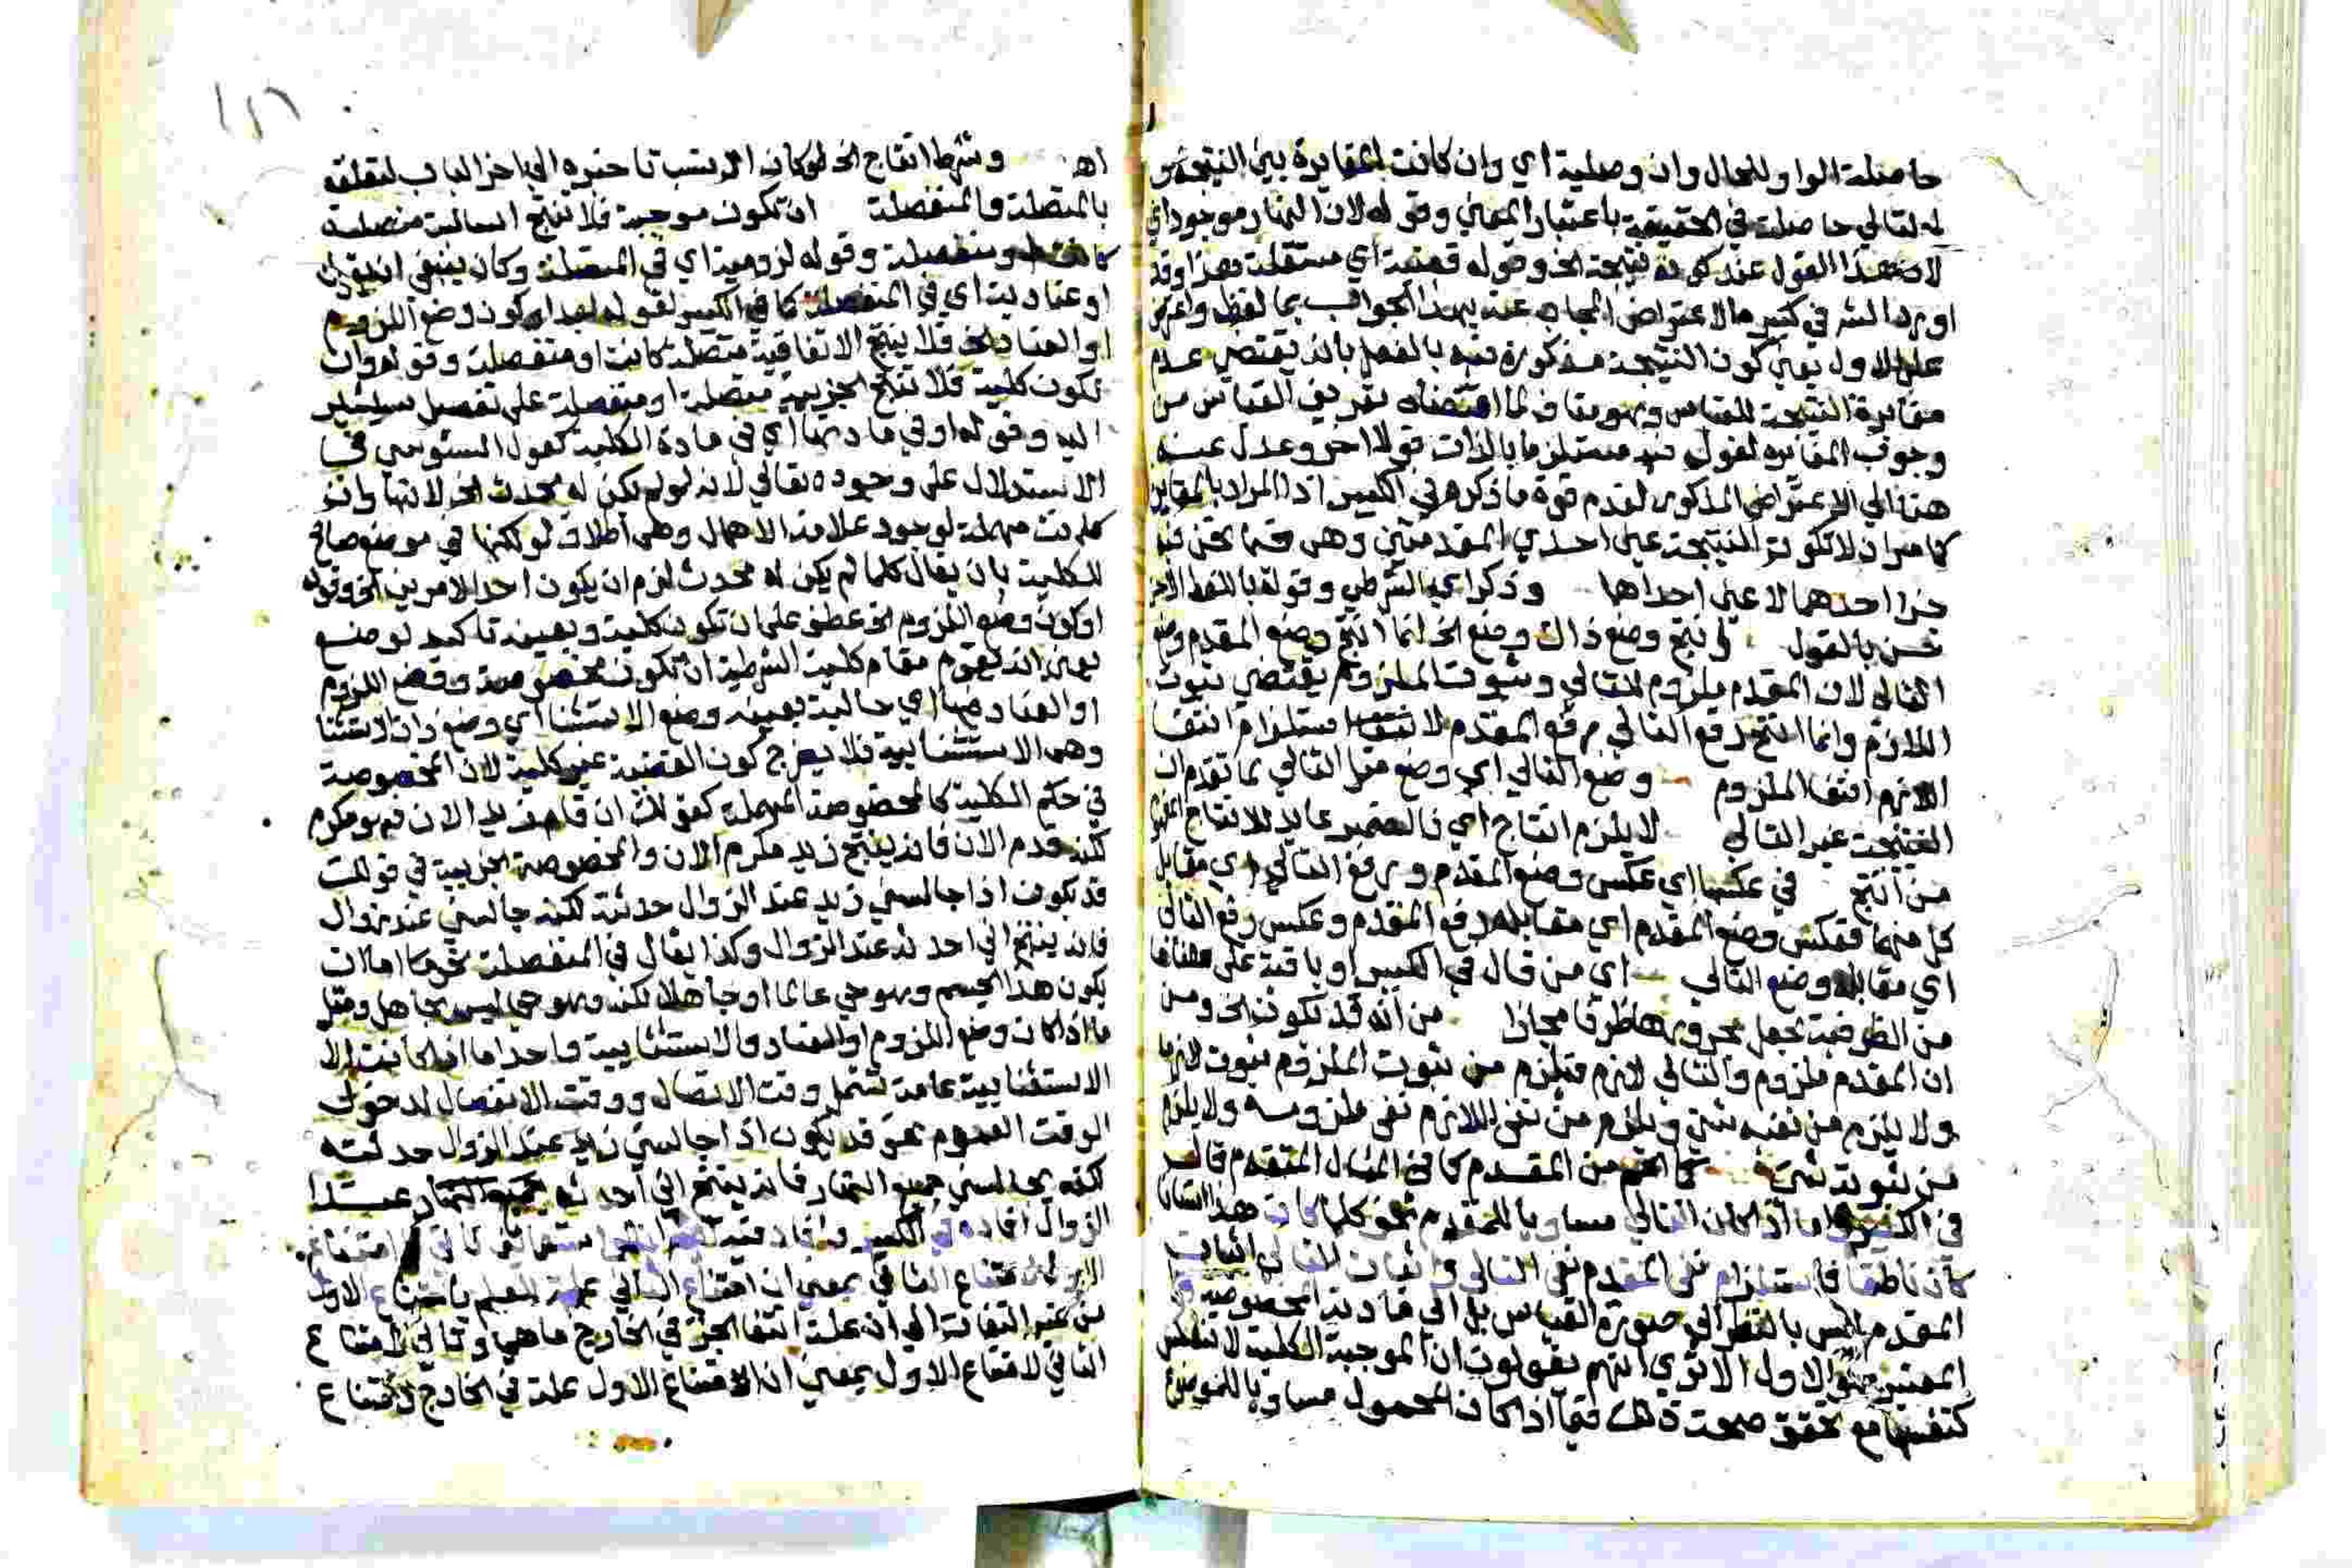 حاصلة الواو للحال وان وصلية اي وان كانت المغايرة بين النتيجة و
له لتالي حاصلة في الحقيقة باعتبار المعني وقوله لان النهار موجود اي
لان هذا القول عند كونه نتيجة الخ وقوله قضية اي مستقلة هذا وقد
اورد الش في كبيره الاعتراض المجاب عنه بهذا الجواب بما لفظه واعترض
علي الاول يعني كون النتيجة مذكورة فيه بالفعل بانه يقتضي عدم
مغايرة النتيجة للقياس وهو مناف لما اقتضاه تعريف القياس من
وجوب المغايرة لقوله فيه مستلزما بالذات قولا اخر وعدل عنه
هنا الي الاعتراض المذكور لعدم قوة ما ذكره في الكبير اذ المراد بالمغايرة
كما مر ان لا تكون النتيجة عين احدي المقدمتين وهي فيما نحن فيه
جزا احدهما لا عين احداها وذكر اي الشرطي وقوله بالنظر الاخر
تحسن بالقول وانتج وضع ذاك وضع الخ انما انتج وضع المقدم وضع
التالي لان المقدم ملزوم للتالي وثبوت الملزوم يقتضي ثبوت
اللازم وانما انتج رفع التالي رفع المقدم لاستلزام انتفا
اللازم انتفا الملزوم وضع التالي اي وضع مثل التالي بما تقدم ان
النتيجة غير التالي لا يلزم انتاج اي فالضمير عايد للانتاج المفهوم
من انتج في عكسها اي عكس وضع المقدم ورفع التالي اي مقابل
كل منهما فعكس وضع المقدم اي مقابله رفع المقدم وعكس رفع التالي
اي مقابله وضع التالي اي من قال في الكبير او باقية علي معناها
من الظرفية بجعل مجرورها ظرفا مجازا من انه قد يكون الخ ومن
ان المقدم ملزوم والتالي لازم فيلزم من ثبوت الملزوم ثبوت لازمه
ولا يلزم من نفيه شي ويلزم من نفي اللازم نفي ملزومه ولا يلزم
من ثبوته شي كما اعم من المقدم كما في المثال المتقدم قال
في الكبير واما اذا كان التالي مساويا للمقدم نحو كلما كان هذا انسانا
كان ناطقا فاستلزام نفي المقدم نفي التالي واثبات التالي اثبات
المقدم ليس بالنظر الي صورة القياس بل الي مادته المخصوصة و
المعتبر هو الاول الا تري انهم يقولون ان الموجبة الكلية لا تنعكس
كنفسها مع تحقق صحة ذلك فيما اذا كان المحمول مساويا للموضوع
١١٦
اهـ وشرط انتاج الخ لو كان الانسب تاخيره الي اخر الباب لتعلقه
بالمتصلة والمنفصلة ان تكون موجبة فلا تنتج السالبة متصلة
كانت او منفصلة وقوله لزومية اي في المتصلة وكان ينبغي ان يقول
او عنادية اي في المنفصلة كما في الكبير لقوله بعد او كون وضع اللزوم
او العناد الخ فلا ينتج الاتفاقية متصلة كانت او منفصلة وقوله وان
تكون كلية فلا تنتج الجزيية متصلة او منفصلة علي تفصيل سيشير
اليه وقوله او في مادتها اي في مادة الكلية كقول السنوسي في
الاستدلال علي وجوده تعالي لانه لو لم يكن له محدث الخ لانها وان
كانت مهملة لوجود علامة الاهمال وهي اطلاق لو لكنها في موضع صالح
للكلية بان يقال كلما لم يكن له محدث لزم ان يكون احد الامرين الخ وقوله
او كون وضع اللزوم الخ عطف علي ان تكون كلية وبعينه تاكيد لوضع
يعني انه يقوم مقام كلية الشرطية ان تكون مخصوصة وضع اللزوم
او العناد فيها اي حالية بعينه وضع الاستثنا اي وضع ذات الاستثنا
وهي الاستثنايية فلا يخرج كون القضية غير كلية لان المخصوصة
في حكم الكلية كالمخصوصة المهملة كقولك ان قام زيد الان فهو مكرم
لكنه قدم الان فانه ينتج زيد مكرم الان والمخصوصة الجزيية في قولك
قد يكون اذا جالسني زيد عند الزوال حدثته لكنه جالسني عند زوال
فانه ينتج اني احدثه عند الزوال وكذا يقال في المنفصلة نحو اما ان
يكون هذا الجسم وهو حي عالما او جاهلا لكنه وهو حي ليس بجاهل ومثل
ما اذا كان وضع اللزوم او العناد والاستثنايية واحدا ما اذا كانت الا
الاستثنايية عامة تشمل وقت الاتصال ووقت الانفصال لدخول
الوقت العموم نحو قد يكون اذا جالسني زيد عند الزوال حدثته
لكنه يجالسني جميع النهار فانه ينتج اني احدثه جميع النهار عند
الزوال افاده في الكبير
امتناع الثاني بمعني ان امتناع الثاني علة للعلم بامتناع الاول
من غير التفات الي ان علة انتفا الجزا في الخارج ما هي وتاتي لامتناع
الثاني لامتناع الاول بمعني ان الامتناع الاول علة في الخارج لامتناع